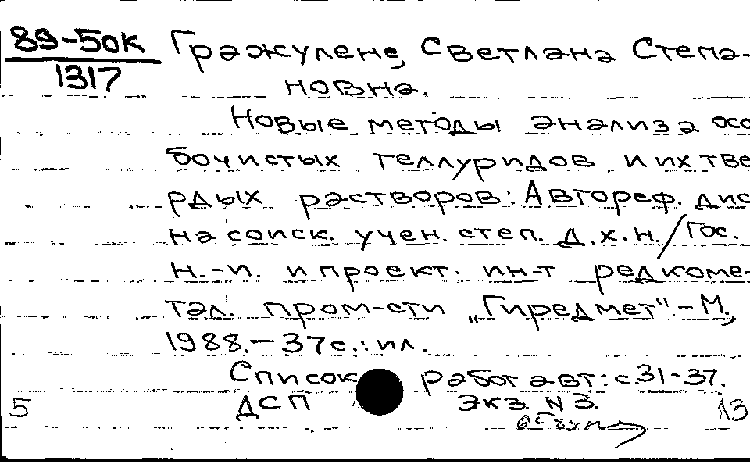 89-50к Гражулене, Светлана Степа-
1317 новна.
Новые методы анализа осо
бочистых теллуридов и их тве
рдых растворов: Автореф. дис
на соиск. учен. степ. д.х.н./Гос.
н.-и. и проект. ин-т редкоме-
тал. пром-сти „Гиредмет".-М.,
1988.-37с.:ил.
Список работ авт: с.31-37.
5 ДСП экз. N 3. 13